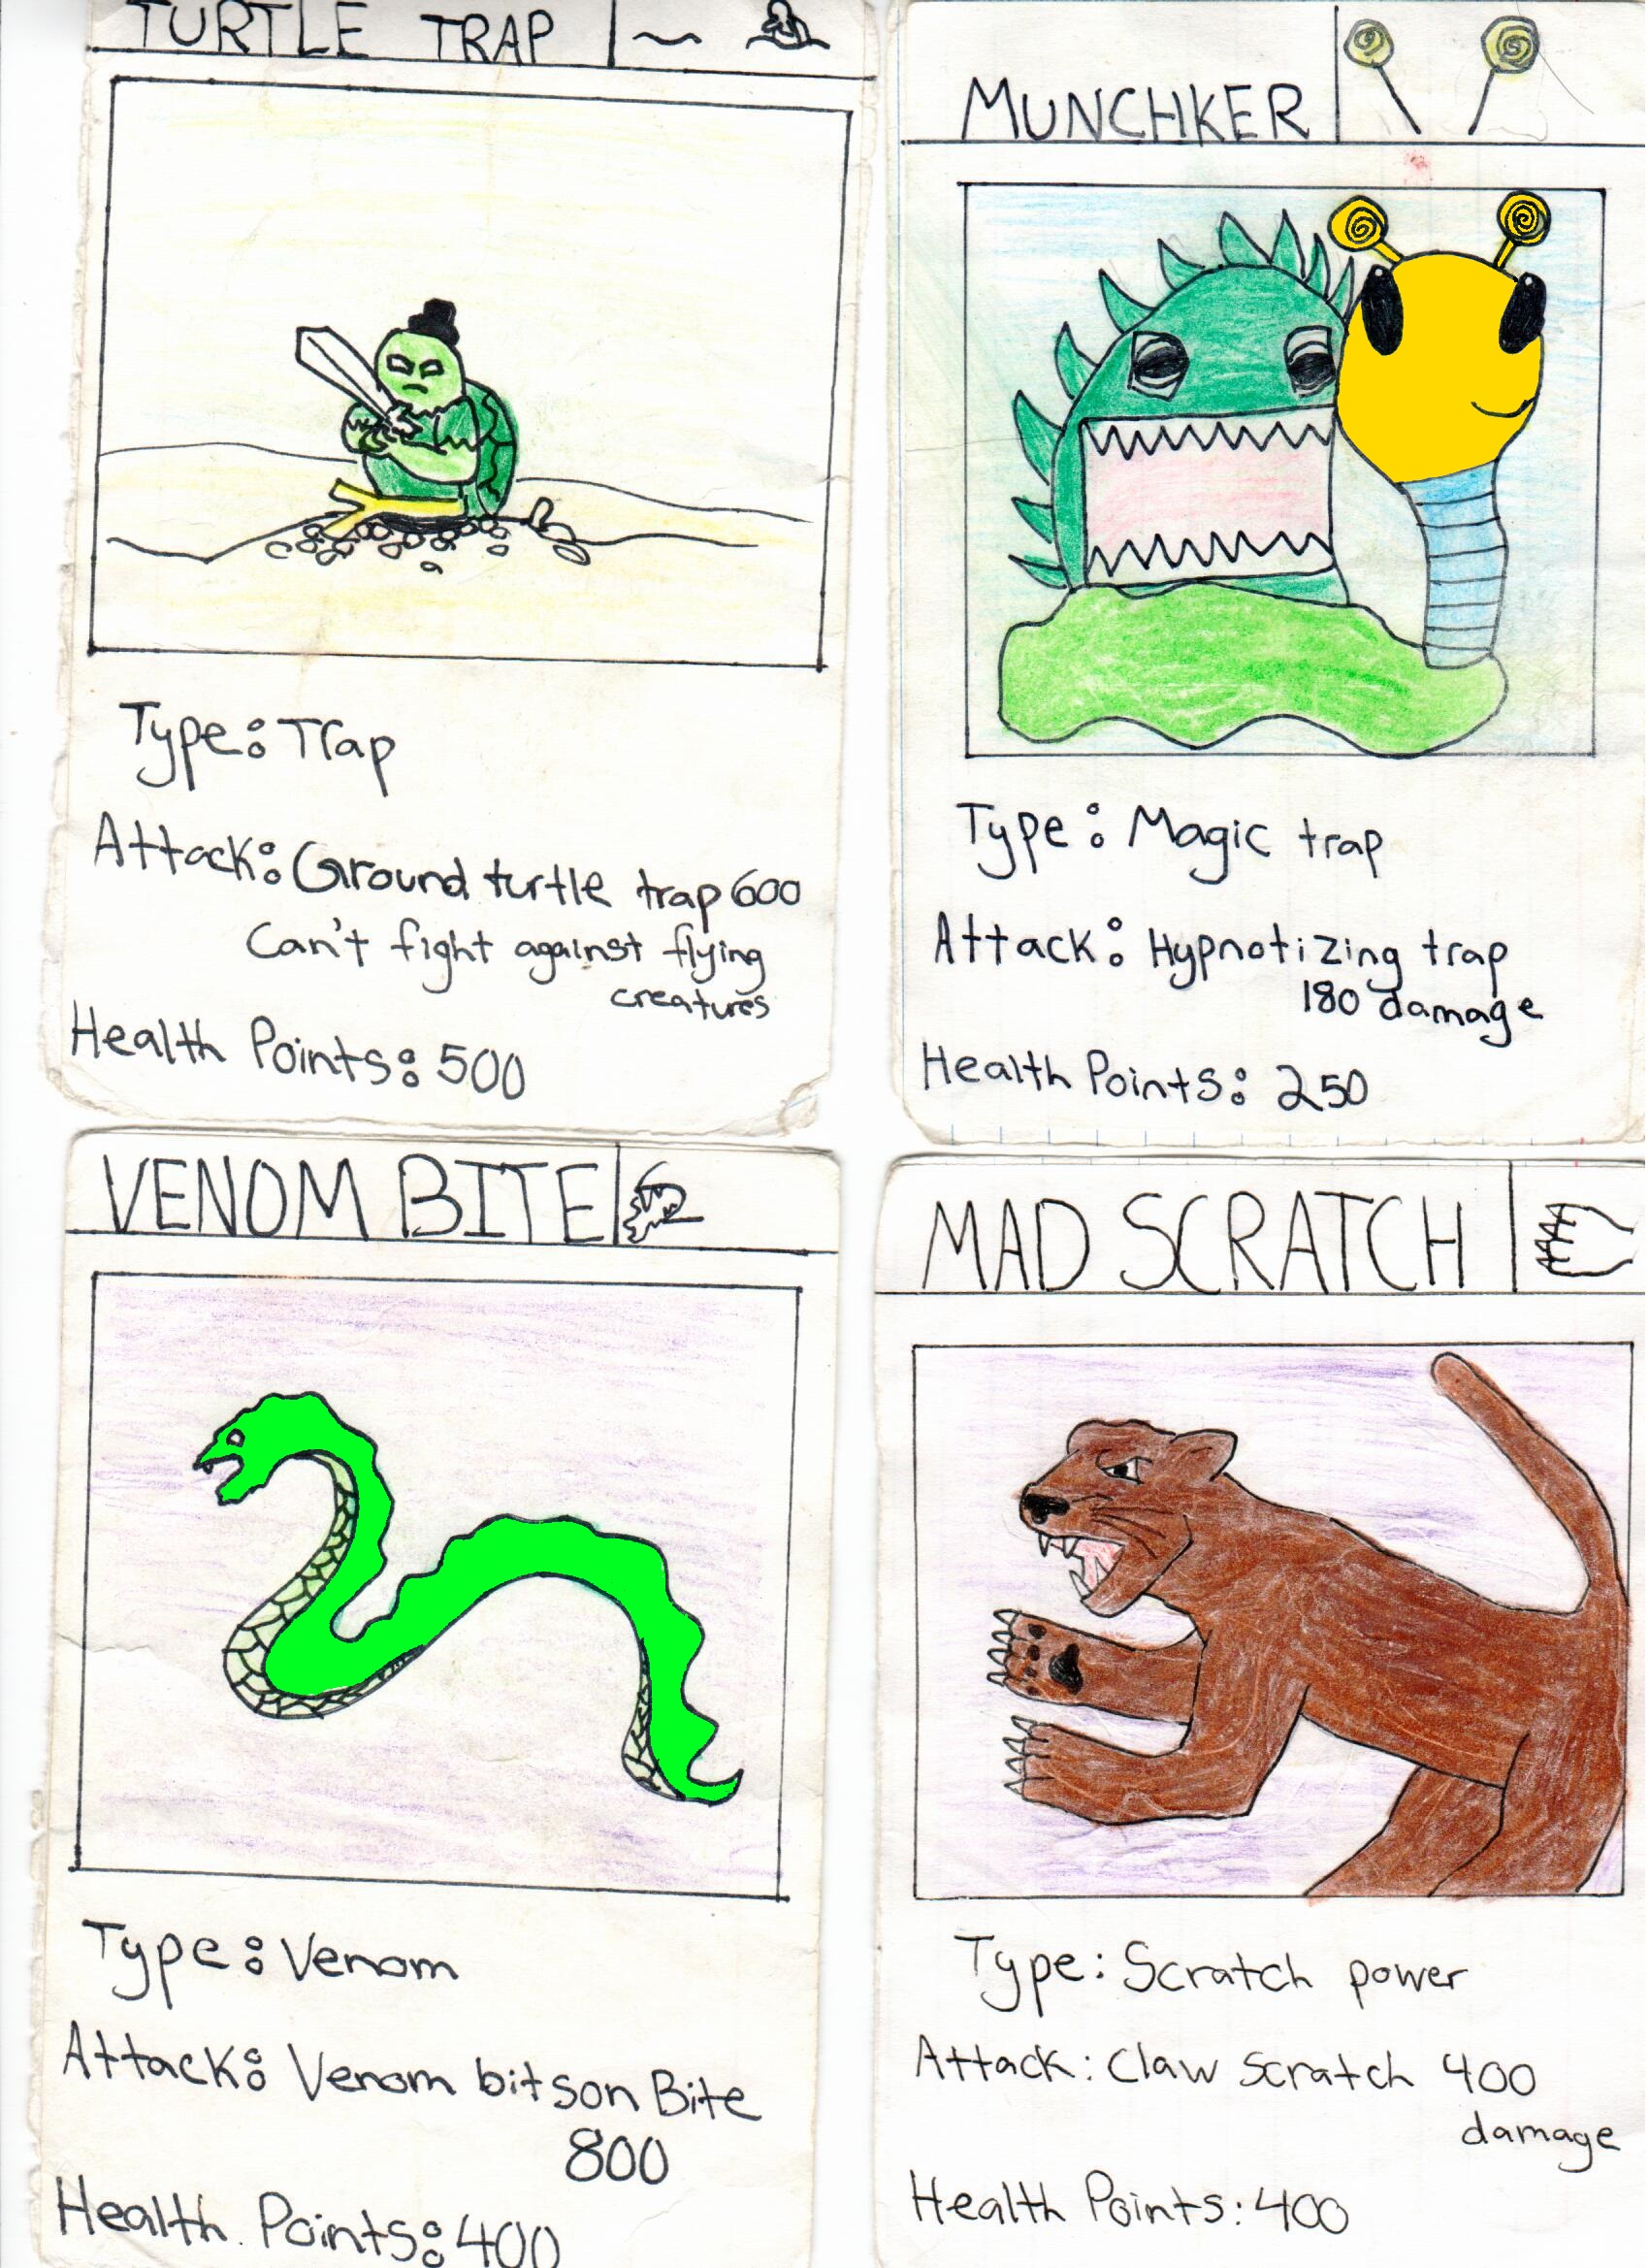 TURTLE TRAP
Type: Trap
Attack: Ground turtle trap 600
Can't fight against flying
creatures
Health Points: 500
MUNCHKER
Type: Magic trap
Attack: Hypnotizing trap
180 damage
Health Points: 250
VENOM BITE
Type: Venom
Attack: Venom bitson Bite
800
Health Points: 400
MAD SCRATCH
Type: Scratch power
Attack: Claw Scratch 400
damage
Health Points: 400